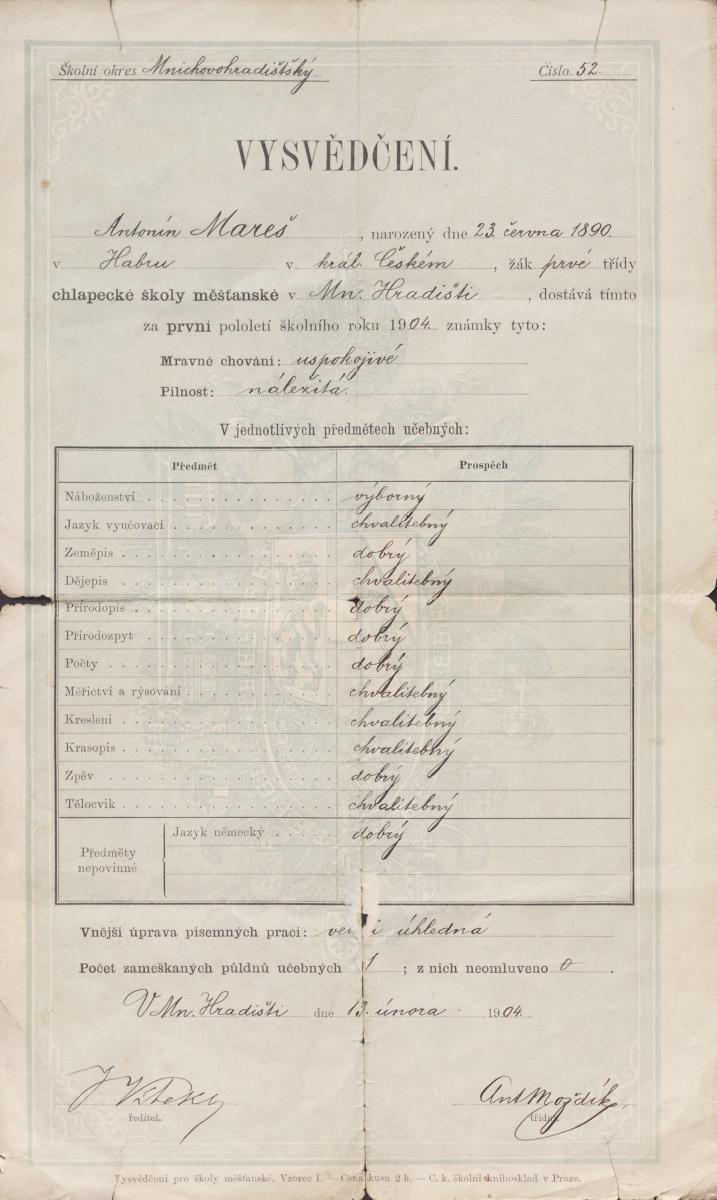 Školní okres Mnichovohradištský Číslo 52.
VYSVĚDČENÍ.
Antonín Mareš, narozený dne 23. června 1890.
v Habru v král. Českém, žák prvé třídy
chlapecké školy měšťanské v Mn. Hradišti, dostává tímto
za první pololetí školního roku 1904. známky tyto:
Mravné chování: uspokojivé
Pilnost: náležitá.
V jednotlivých předmětech učebných:
Předmět Prospěch
Náboženství výborný
Jazyk vyučovací chvalitebný
Zeměpis dobrý
Dějepis chvalitebný
Přírodopis dobrý
Přírodozpyt dobrý
Počty dobrý
Měřictví a rýsování chvalitebný
Kreslení chvalitebný
Krasopis chvalitebný
Zpěv dobrý
Tělocvik chvalitebný
Předměty nepovinné Jazyk německý dobrý
Vnější úprava písemných prací: úhledná
Počet zameškaných půldnů učebných 1; z nich neomluveno 0.
V Mn. Hradišti dne 13. února 1904.
Ant Moždík,
ředitel. třídní
Vysvědčení pro školy měšťanské. Vzorec I. — Cena kusu 2 h. — C. k. školní knihosklad v Praze.